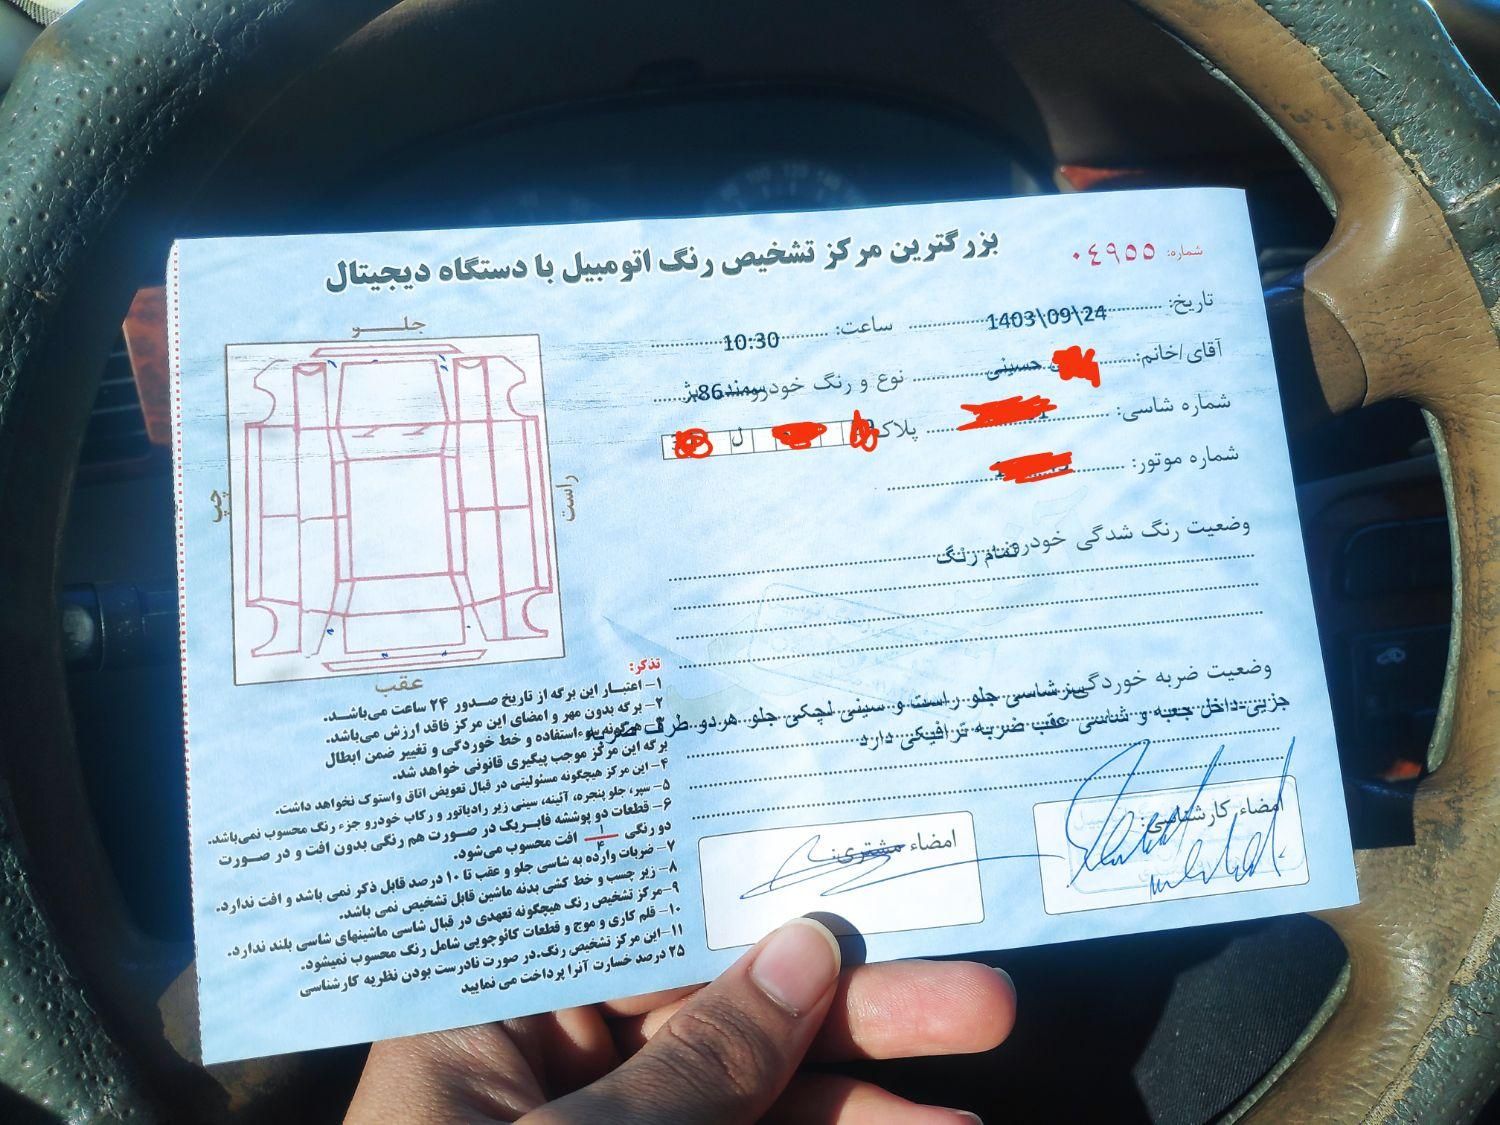 بزرگترین مرکز تشخیص رنگ اتومبیل با دستگاه دیجیتال
شماره: ۰٤۹۵۵
تاریخ: 1403\09\24 ساعت: 10:30
آقای/خانم: حسینی نوع و رنگ خودرو: سمند 86
شماره شاسی: پلاک: ل
شماره موتور:
وضعیت رنگ شدگی خودرو: تمام رنگ
وضعیت ضربه خوردگی: سرشاسی جلو راست و سینی لچکی جلو هردو طرف ضربه
جزیی داخل جعبه و شاسی عقب ضربه ترافیکی دارد
امضاء کارشناسی:
امضاء مشتری:
جلــو
چپ
راست
عقب
تذکر:
۱- اعتبار این برگه از تاریخ صدور ۲۴ ساعت می‌باشد.
۲- برگه بدون مهر و امضای این مرکز فاقد ارزش می‌باشد.
۳- هرگونه سوء استفاده و خط خوردگی و تغییر ضمن ابطال
برگه این مرکز موجب پیگیری قانونی خواهد شد.
۴- این مرکز هیچگونه مسئولیتی در قبال تعویض اتاق واستوک نخواهد داشت.
۵- سپر، جلو پنجره، آئینه، سینی زیر رادیاتور و رکاب خودرو جزء رنگ محسوب نمی‌باشد.
۶- قطعات دو پوششه فابریک در صورت هم رنگی بدون افت و در صورت
دو رنگی ۱/۴ افت محسوب می‌شود.
۷- ضربات وارده به شاسی جلو و عقب تا ۱۰ درصد قابل ذکر نمی باشد و افت ندارد.
۸- زیر چسب و خط کشی بدنه ماشین قابل تشخیص نمی باشد.
۹- مرکز تشخیص رنگ هیچگونه تعهدی در قبال شاسی ماشینهای شاسی بلند ندارد.
۱۰- قلم کاری و موج و قطعات کائوچویی شامل رنگ محسوب نمیشود.
۱۱- این مرکز تشخیص رنگ.در صورت نادرست بودن نظریه کارشناسی
۲۵ درصد خسارت آنرا پرداخت می نمایید